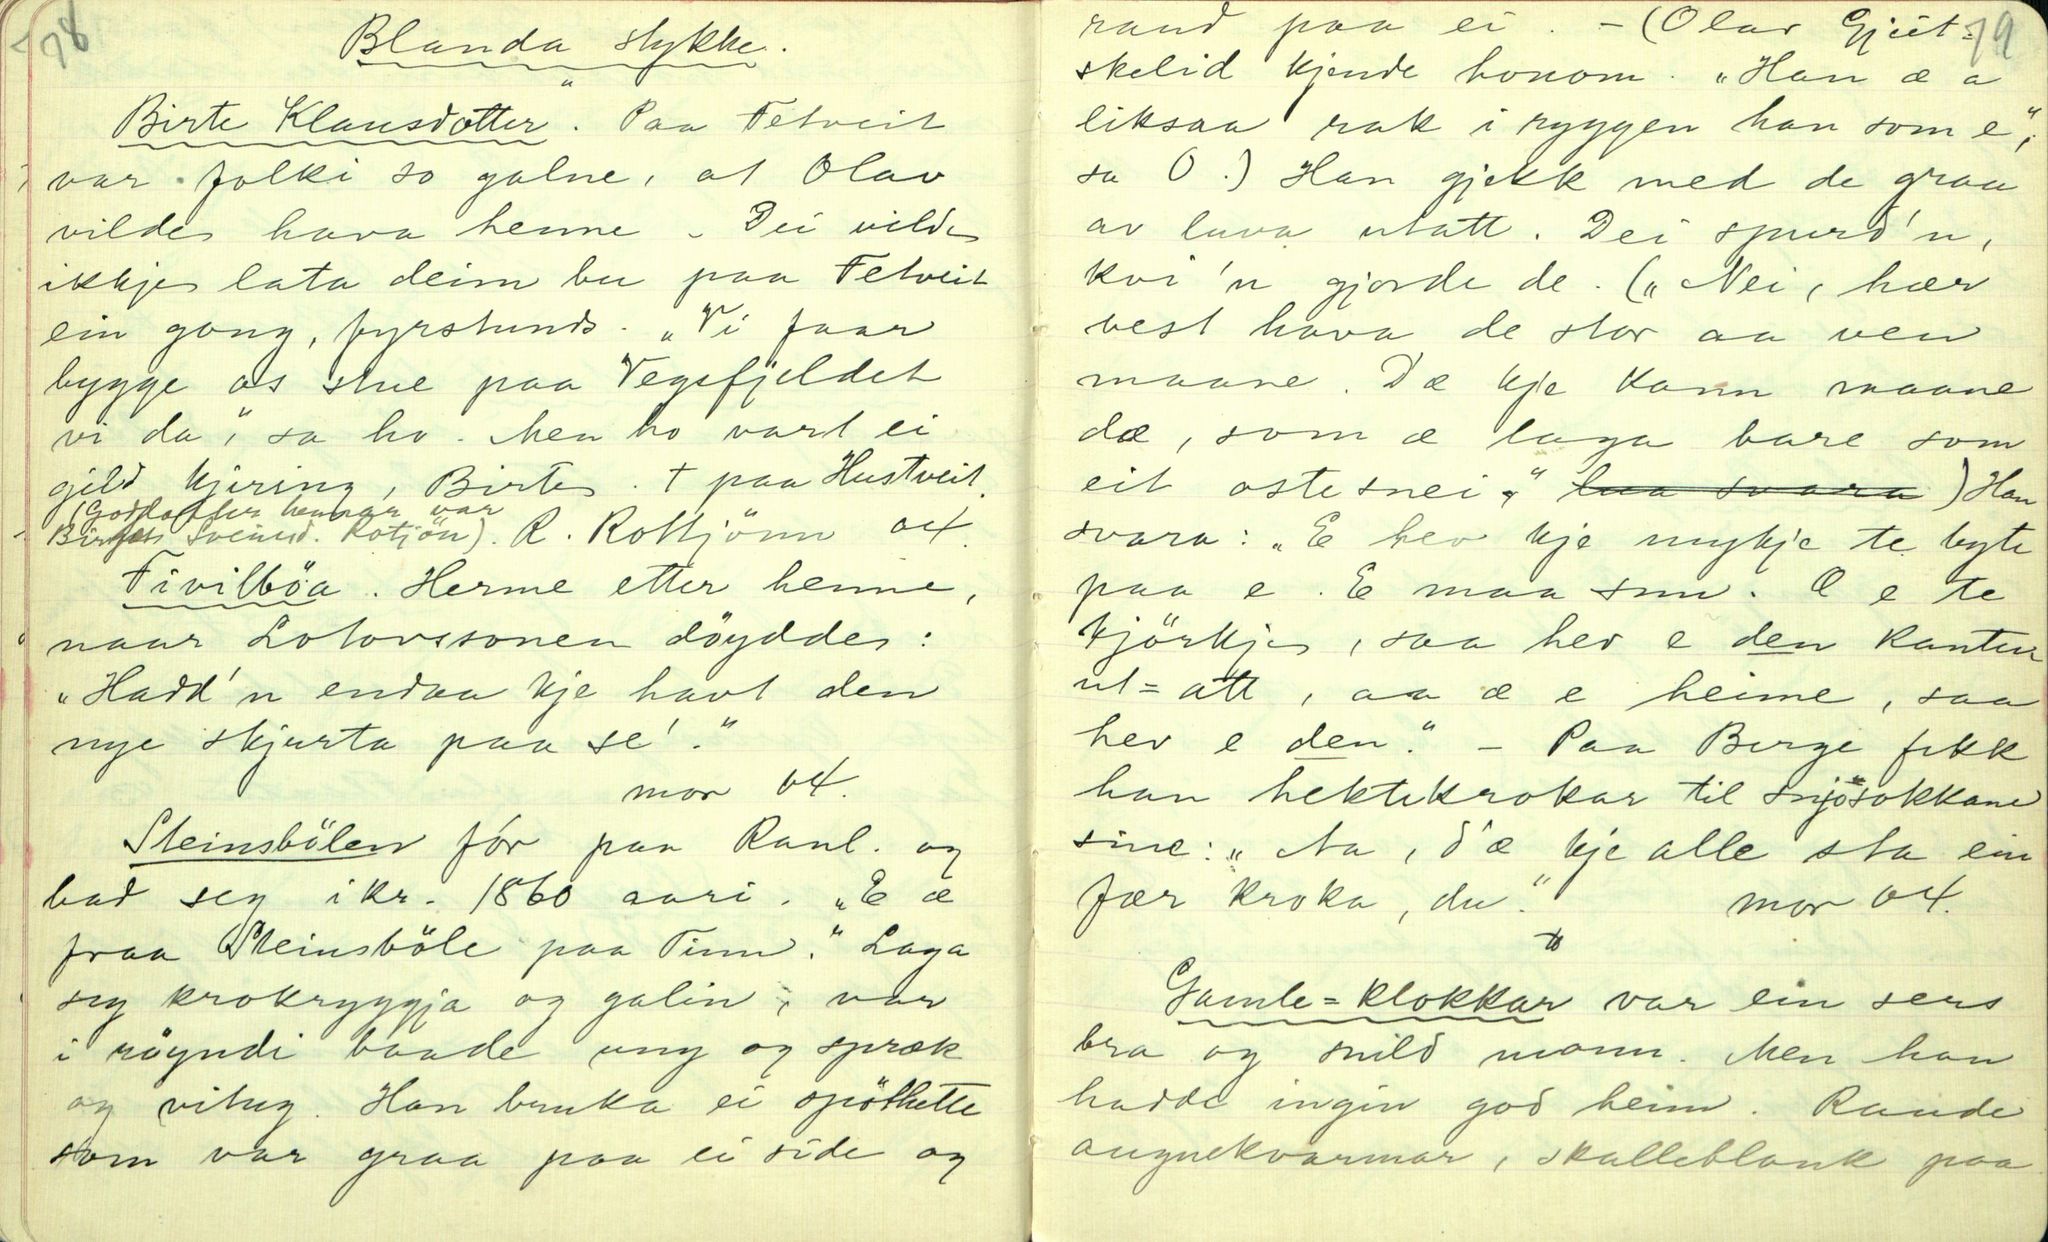 78
Blanda stykke.
Birte Klausdotter. Paa Fetveit
var folki so galne, at Olav
vilde hava henne. Dei vilde
ikkje lata deim bu paa Fetveit
ein gong, fyrstunds. "Vi faar
bygge os stue paa Vegsfjeldet
vi da", sa ho. Men ho vart ei
gjild kjering, Birte. † paa Hustveit.
(Godfatter hennar var
Sveinsd. Rotjön). R. Rottjönn 04.
Fivilböa. Herme etter henne,
naar Lotovssonen döydde:
"Hadd'n endaa kje havt den
nye skjurta paa se'."
mor 04.
Steinsbölen fór paa Raul. og
bad seg ikr. 1860 aari. "E æ
fraa Steinsböle paa Tinn." Laga
seg krokryggja og galin, var
i röyndi baade ung og spræk
og vitug. Han bruka ei spöthette
som var graa paa ei side og
79
rand paa ei. - (Olav Gjeit=
skelid kjende honom. "Han æ a
liksaa rak i ryggen han som e",
sa O.) Han gjekk med de graa
av luva utatt. Dei spurd'n,
kvi 'n gjorde de. ("Nei, hær
vest hava de stor aa ven
maane. D æ kje kann maane
dæ, som æ laga bare som
eit ostesnei," svara) Han
svara: "E hev kje mykje te byte
paa e. E maa snu. Æ e te
kjörkje, saa hev e den kanten
ut=att, aa æ e heime, saa
hev e den." - Paa Berge fekk
han hektekrokar til snjósokkane
sine: "Aa, d'æ kje alle sta ein
fær kroka, du." mor 04.
Gamle=klokkar var ein sers
bra og snild mann. Men han
hadde ingin god heim. Raude
augnekvarmar, skalleblank paa